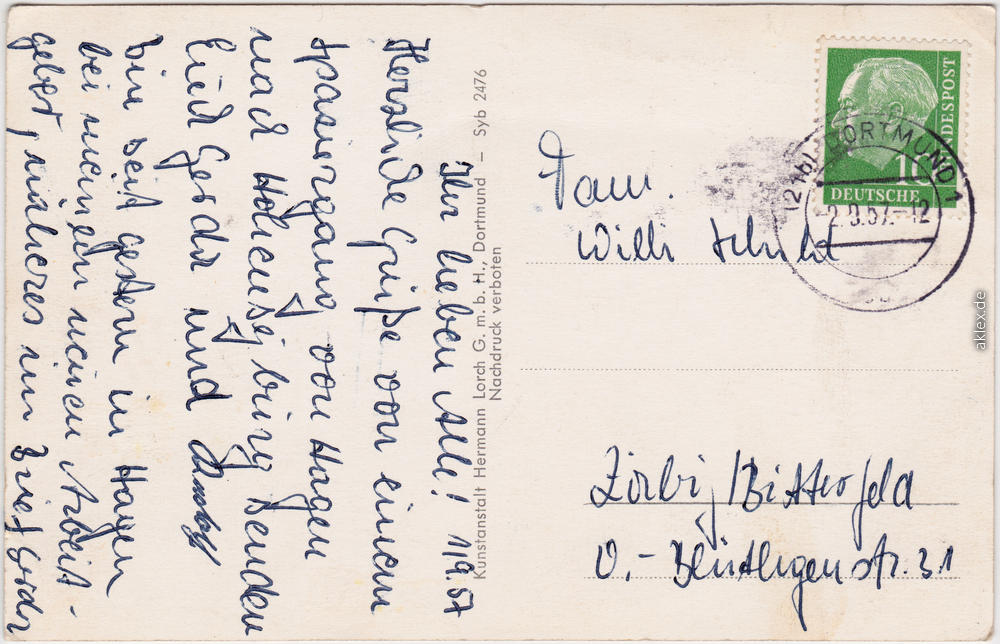 Ihr lieben Alle! 1/9.57
Herzliche Grüße von einem
spaziergang von Hagen
nach Hohensyburg senden
Euch Gerda und
bin seit gestern in Hagen
bei meinem neuen Arbeit-
geber, näheres im Brief Gerda
Kunstanstalt Hermann Lorch G. m. b. H., Dortmund – Syb 2476
Nachdruck verboten
DEUTSCHE BUNDESPOST
10
DORTMUND 1
2.9.57.-12
Fam.
Willi Schult
Zörbig/Bitterfeld
str. 31
aklex.de